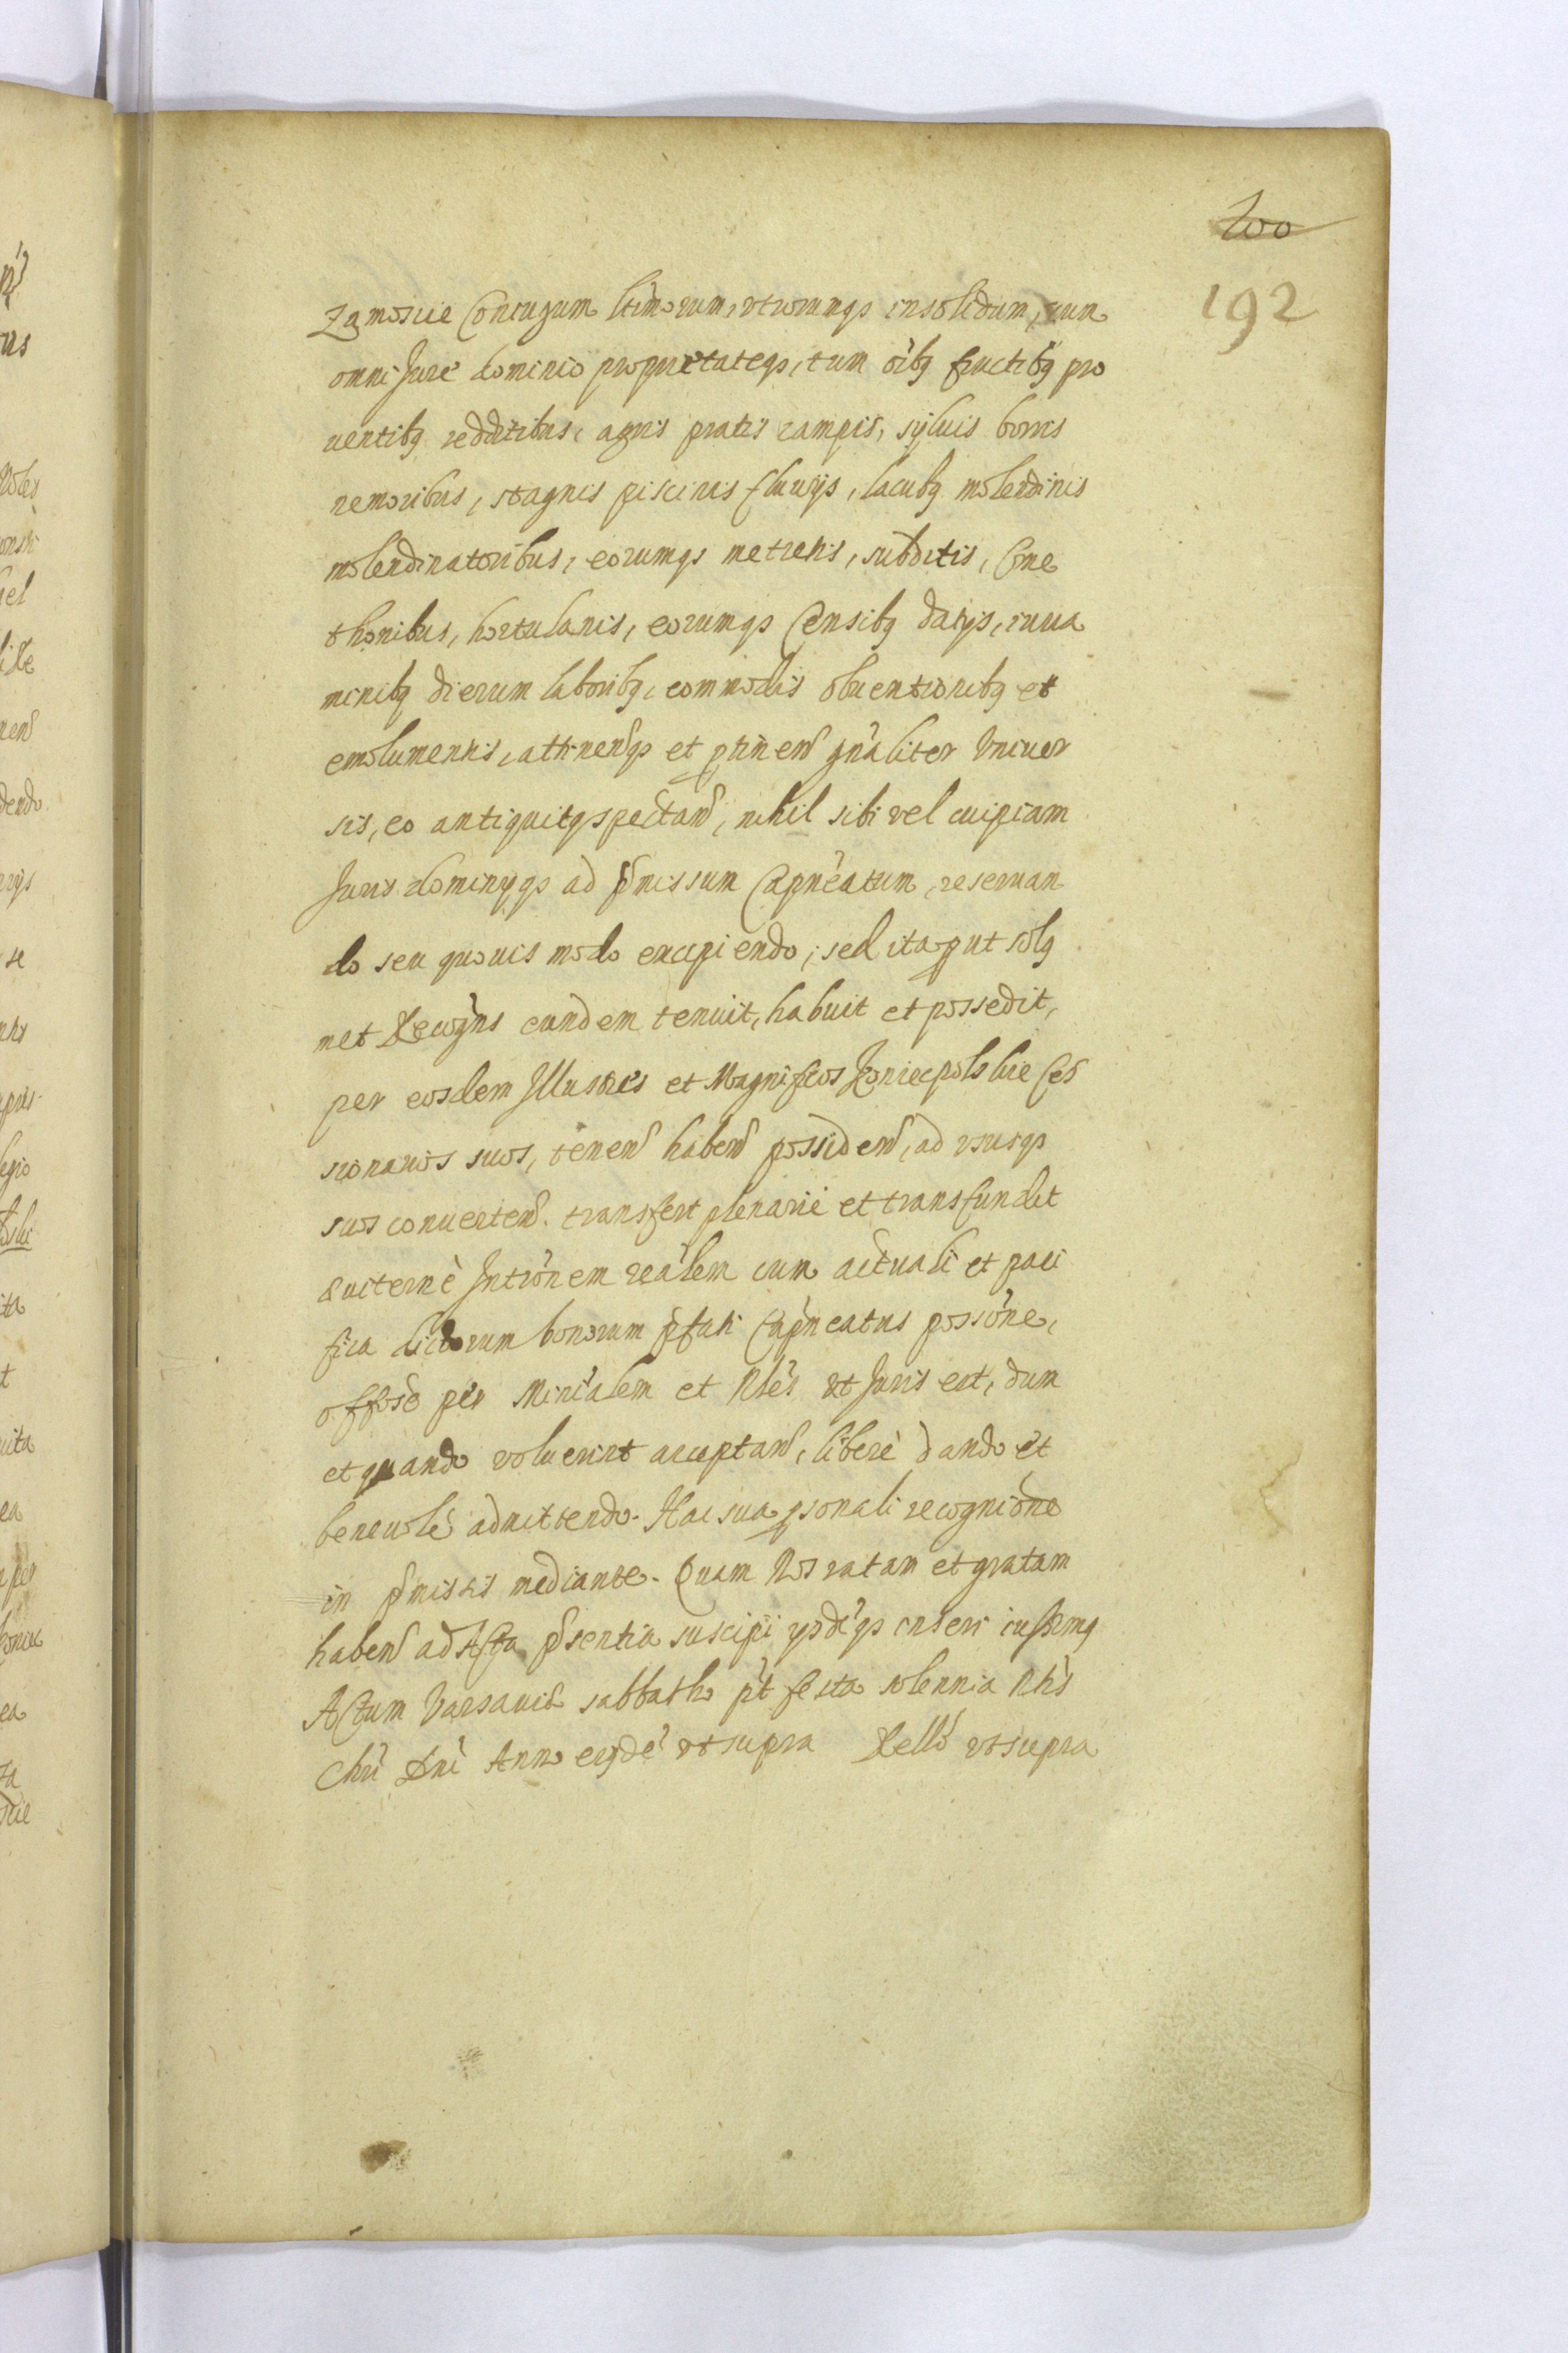 200
192
Zamoscie Coniugum ltimorum, vtrorumqs insolidum, cum
omni Jure dominio proprietateqs, tum oibq fructibq pro
uentibq redditibus, agris pratis campis, syluis borris
nemoribus, stagnis piscinis fluuijs, lacubq molendinis
molendinatoribus, eorumqs metretis, subditis, Cme
thonibus, hortulanis, eorumqs Censibq datijs, iuua
minibq dierum laboribq, commodis obuentionibq et
emolumentis, attinenqs et ptinen gnaliter Vniuer
sis, eo antiquitqspectan, nihil sibi vel cuipiam
Juris dominijqs ad pmissum Capneatum, reseruan
do seu quouis modo excipiendo; sed ita put solq
met Recogns eundem tenuit, habuit et possedit,
per eosdem Illustres et Magnificos Koniecpolskie Ces
sionarios suos, tenen haben possiden, ad vsusqs
suos conuerten. transfert plenarie et transfundit
&uiterne Intronem realem cum actuali et paci
fica dictorum bonorum pfati Capneatus possone,
offose per Minialem et Nbles vt Juris est, dum
et quando voluerint acceptan, libere dando et
beneuole admittendo. Hac sua psonali recognione
in pmissis mediante. Quam Nos ratam et gratam
haben ad Acta psentia suscipi ysdeqs inseri iussimq
Actum Varsauie sabbatho pt festa solennia Ntis
Chri Dni Anno eiusde vtsupra Rello vtsupra